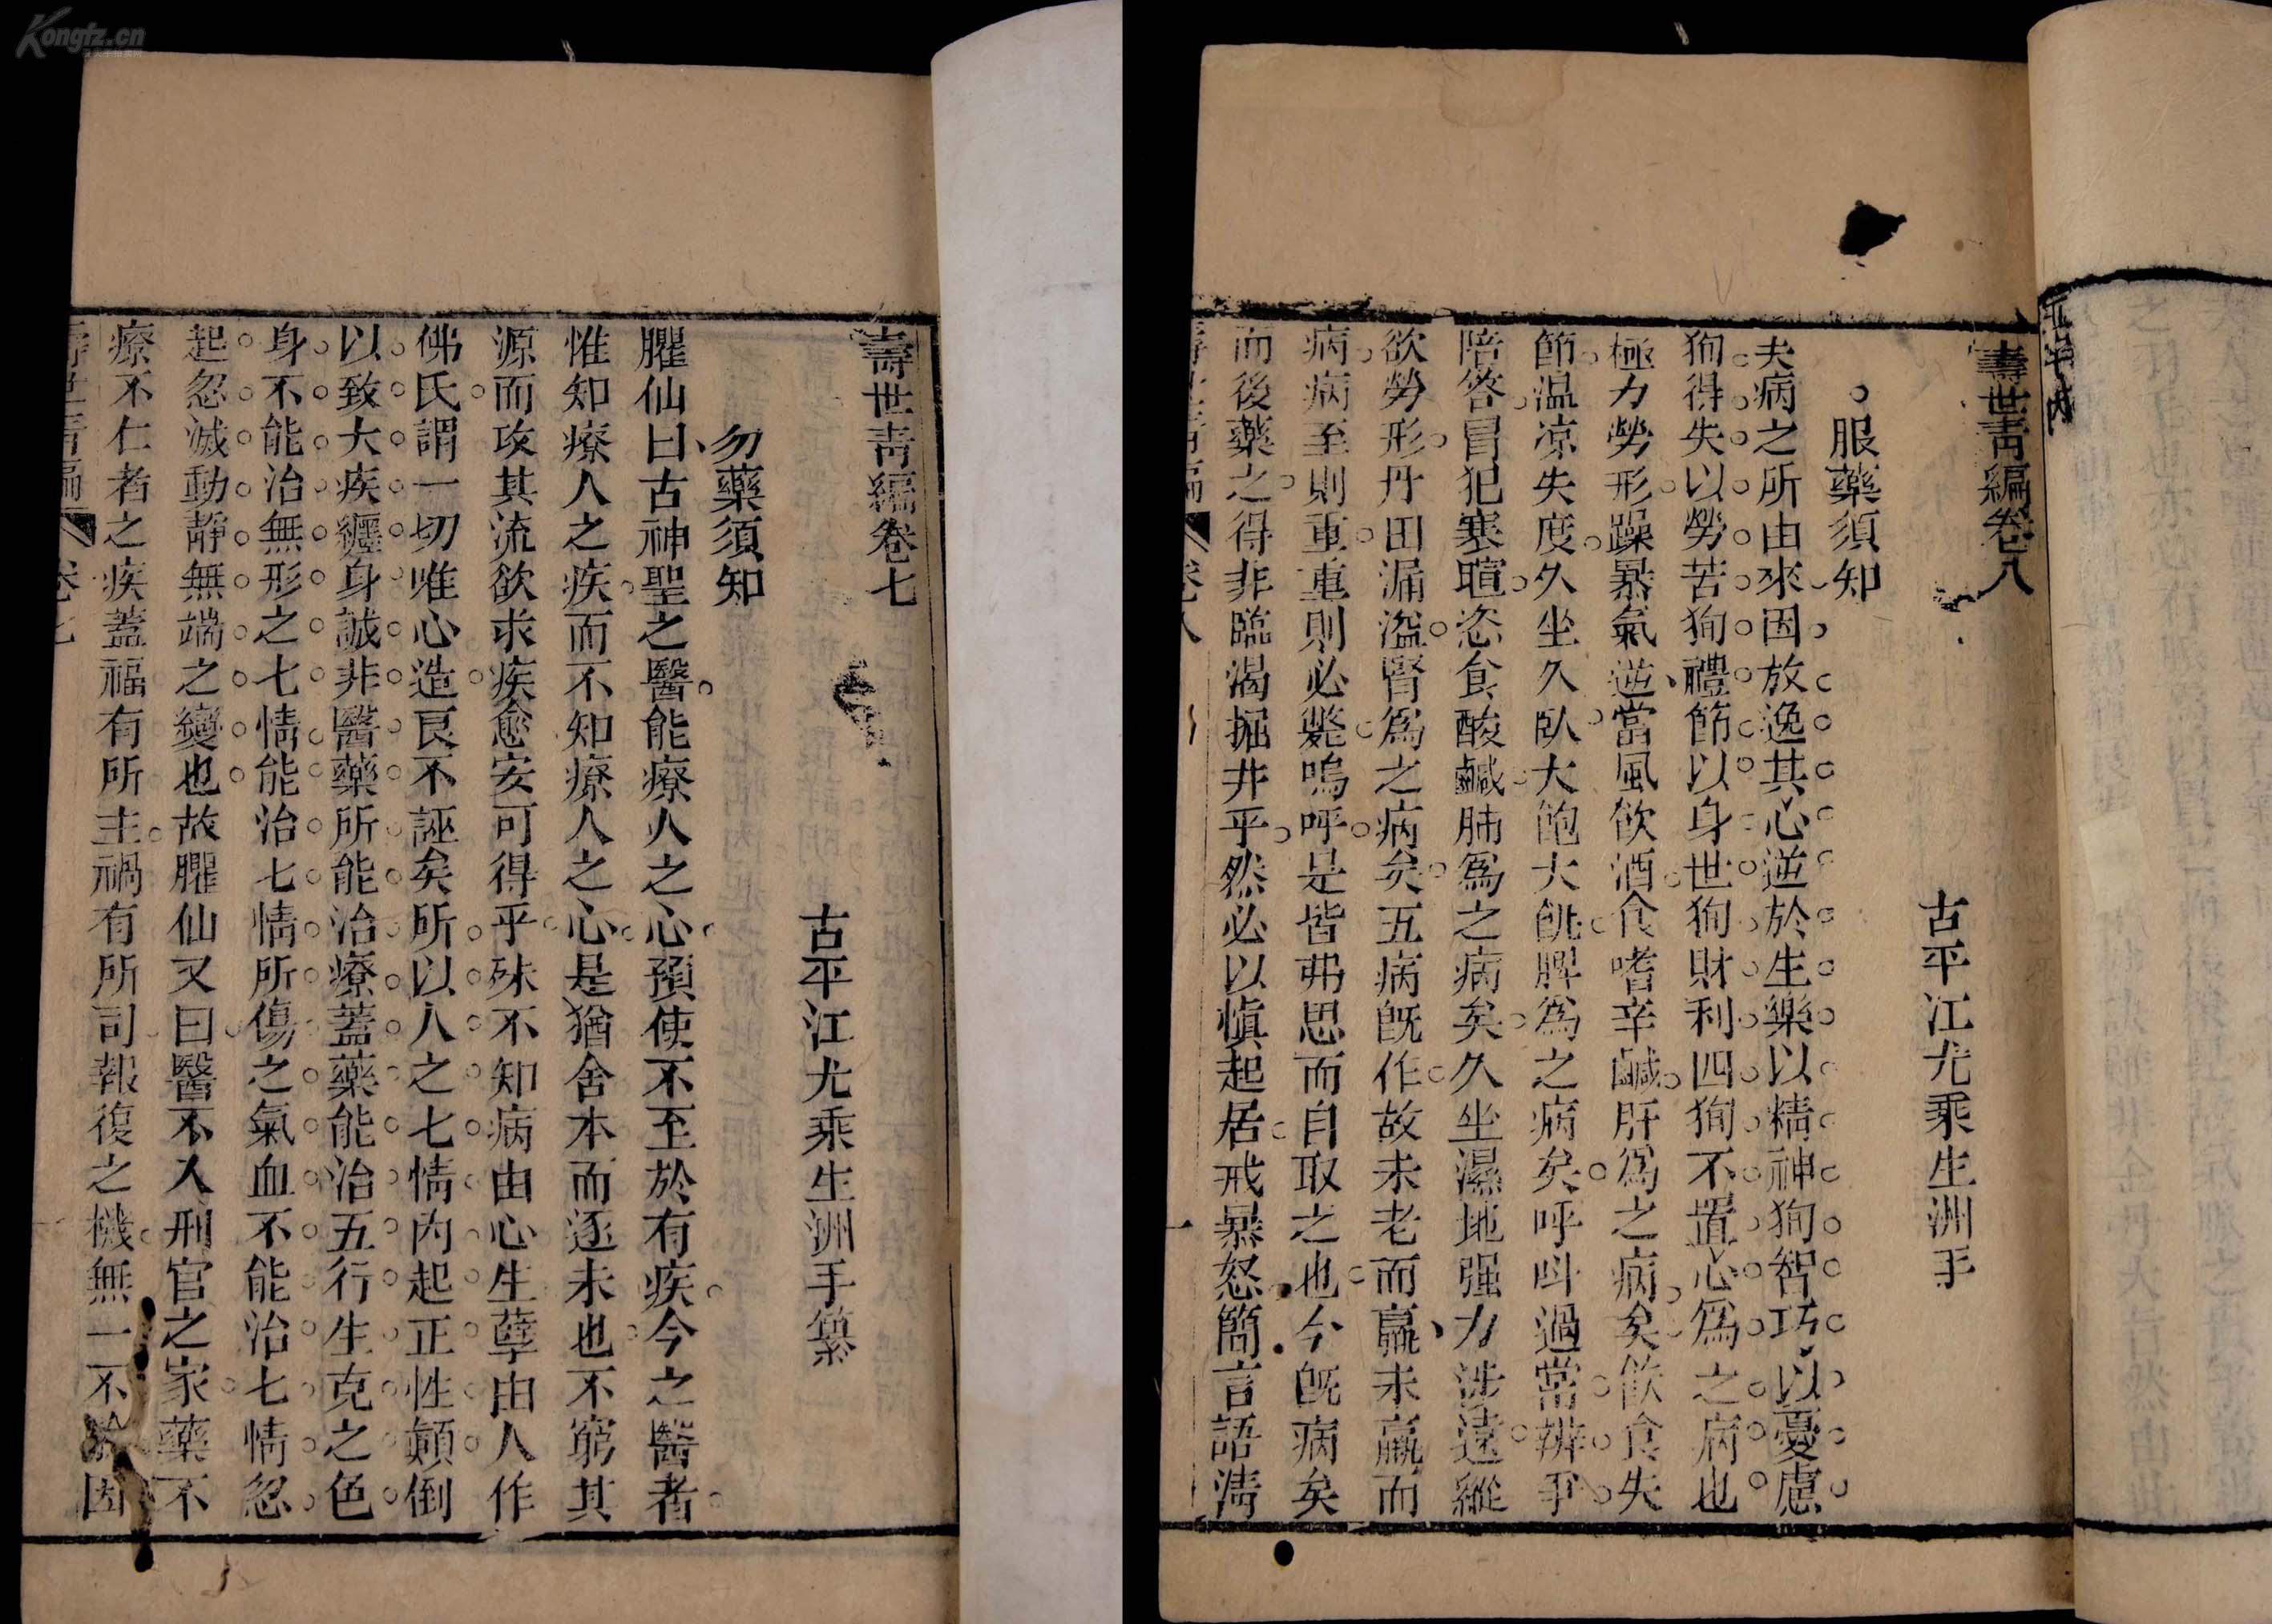 Kongfz.cn
壽世青編卷八
古平江尤乘生洲手
服藥須知
夫病之所由來因放逸其心逆於生樂以精神狥智巧以憂慮
狥得失以勞苦狥禮節以身世狥財利四狥不置心爲之病也
極力勞形躁暴氣逆當風飲酒食嗜辛鹹肝爲之病矣飲食失
節溫凉失度久坐久臥大飽大飢脾爲之病矣呼叫過常辨爭
陪答冒犯塞暄恣食酸鹹肺爲之病矣久坐濕地强力涉遠縱
欲勞形丹田漏溢腎爲之病矣五病旣作故未老而羸未羸而
病病至則重重則必斃嗚呼是皆弗思而自取之也今旣病矣
而後藥之得非臨渴掘井乎然必以愼起居戒暴怒簡言語淸
壽世青編 卷八 一
壽世青編卷七
古平江尤乘生洲手纂
勿藥須知
臞仙曰古神聖之醫能療人之心預使不至於有疾今之醫者
惟知療人之疾而不知療人之心是猶舍本而逐末也不窮其
源而攻其流欲求疾愈安可得乎殊不知病由心生孽由人作
佛氏謂一切唯心造良不誣矣所以人之七情內起正性顛倒
以致大疾纏身誠非醫藥所能治療蓋藥能治五行生克之色
身不能治無形之七情能治七情所傷之氣血不能治七情忽
起忽滅動靜無端之變也故臞仙又曰醫不入刑官之家藥不
療不仁者之疾蓋福有所主禍有所司報復之機無一不因
壽世青編 卷七